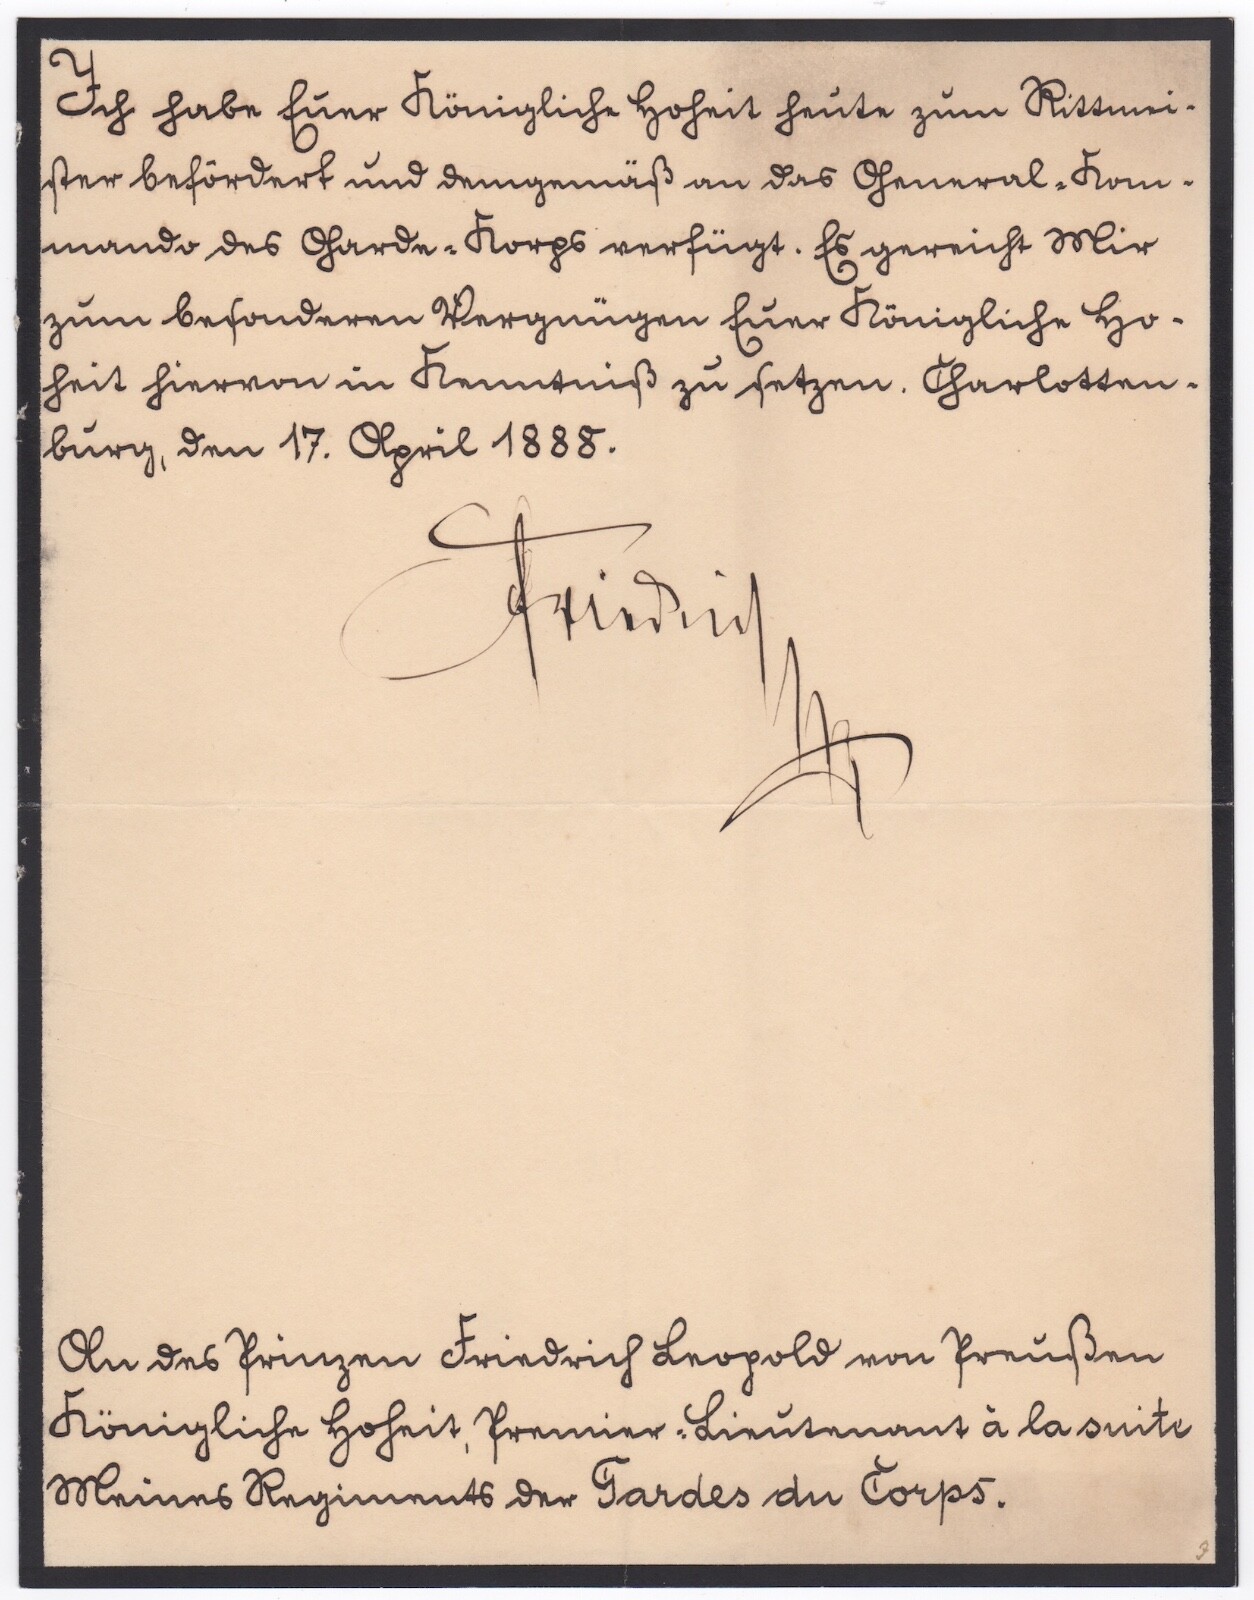 Ich habe Euer Königliche Hoheit heute zum Rittmei-
ster befördert und demgemäß an das General-Kom-
mando des Garde-Korps verfügt. Es gereicht Mir
zum besonderen Vergnügen Euer Königliche Ho-
heit hiervon in Kenntniß zu setzen. Charlotten-
burg, den 17. April 1888.
Friedrich
An des Prinzen Friedrich Leopold von Preußen
Königliche Hoheit, Premier-Lieutenant à la suite
Meines Regiments der Gardes du Corps.